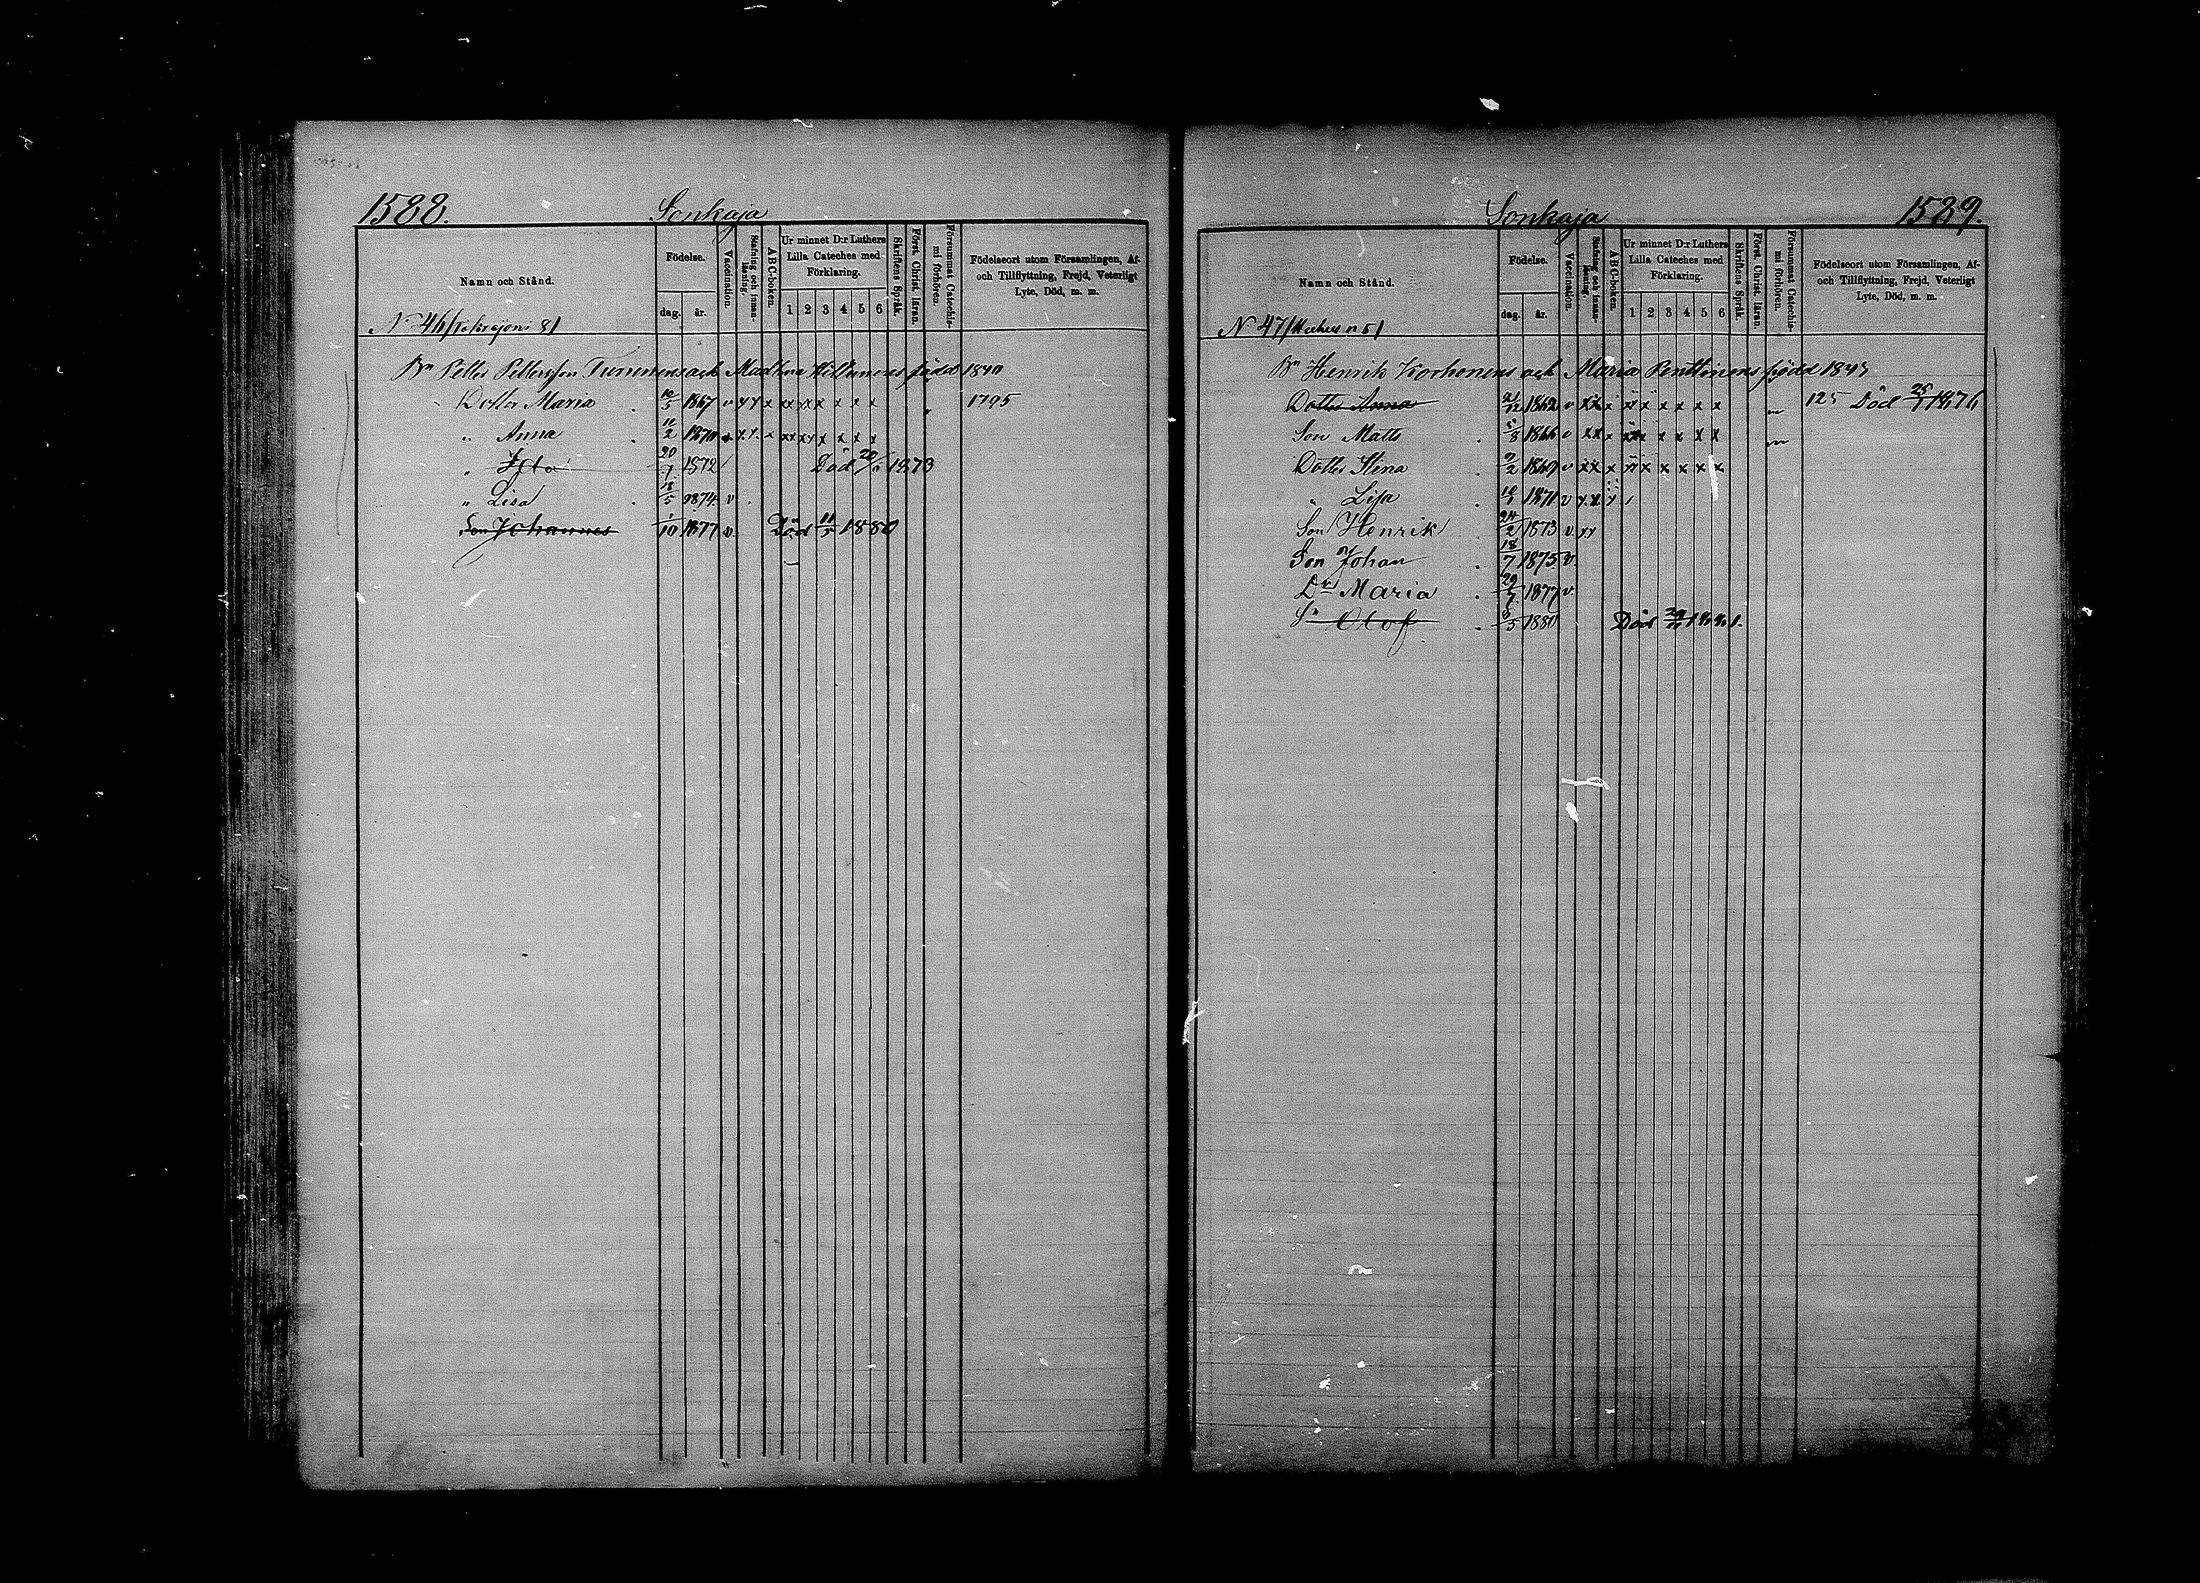 1588.
Sonkaja
Namn och Stånd.
Födelse.
dag.
år.
Vaccination.
Stafning och innanläsning.
A B C-boken.
Ur minnet D:r Luthers
Lilla Cateches med
Förklaring.
1 2 3 4 5 6
Skriftens Språk.
Först. Christ. läran.
Försummat Catechismi förhören.
Födelseort utom Församlingen, Af-
och Tillflyttning, Frejd, Veterligt
Lyte, Död, m. m.
N 46
Bn Petter Pettersson Turunens och Madlena Hiltunens född 1840
Dotter Maria 10/5 1867 v x x x xx x x x x x 1795
" Anna 11/2 1870 x x x xx x x x x x
" 20/7 1872 Död 1873
" Lisa 18/5 1874 v
Son Johannes 1/10 1877 v Död 11/5 1880
1589.
Sonkaja
Namn och Stånd.
Födelse.
dag.
år.
Vaccination.
Stafning och innanläsning.
A B C-boken.
Ur minnet D:r Luthers
Lilla Cateches med
Förklaring.
1 2 3 4 5 6
Skriftens Språk.
Först. Christ. läran.
Försummat Catechismi förhören.
Födelseort utom Församlingen, Af-
och Tillflyttning, Frejd, Veterligt
Lyte, Död, m. m.
N 47
Bn Henrik Korhonens och Maria Penttinens född 1843
Dotter Anna 21/12 1862 v xx x x x x x x x 125 Död 1876
Son Matts 5/8 1866 v xx x x x x x x x
Dotter Stina 9/2 1869 v xx x x x x x x x
" Lisa 1871 v x x
Son Henrik 24/2 1873 v. xx
Son Johan 18/7 1875 v.
Dr Maria 29/7 1877 v.
Sn Olof 1880 Död 1881.